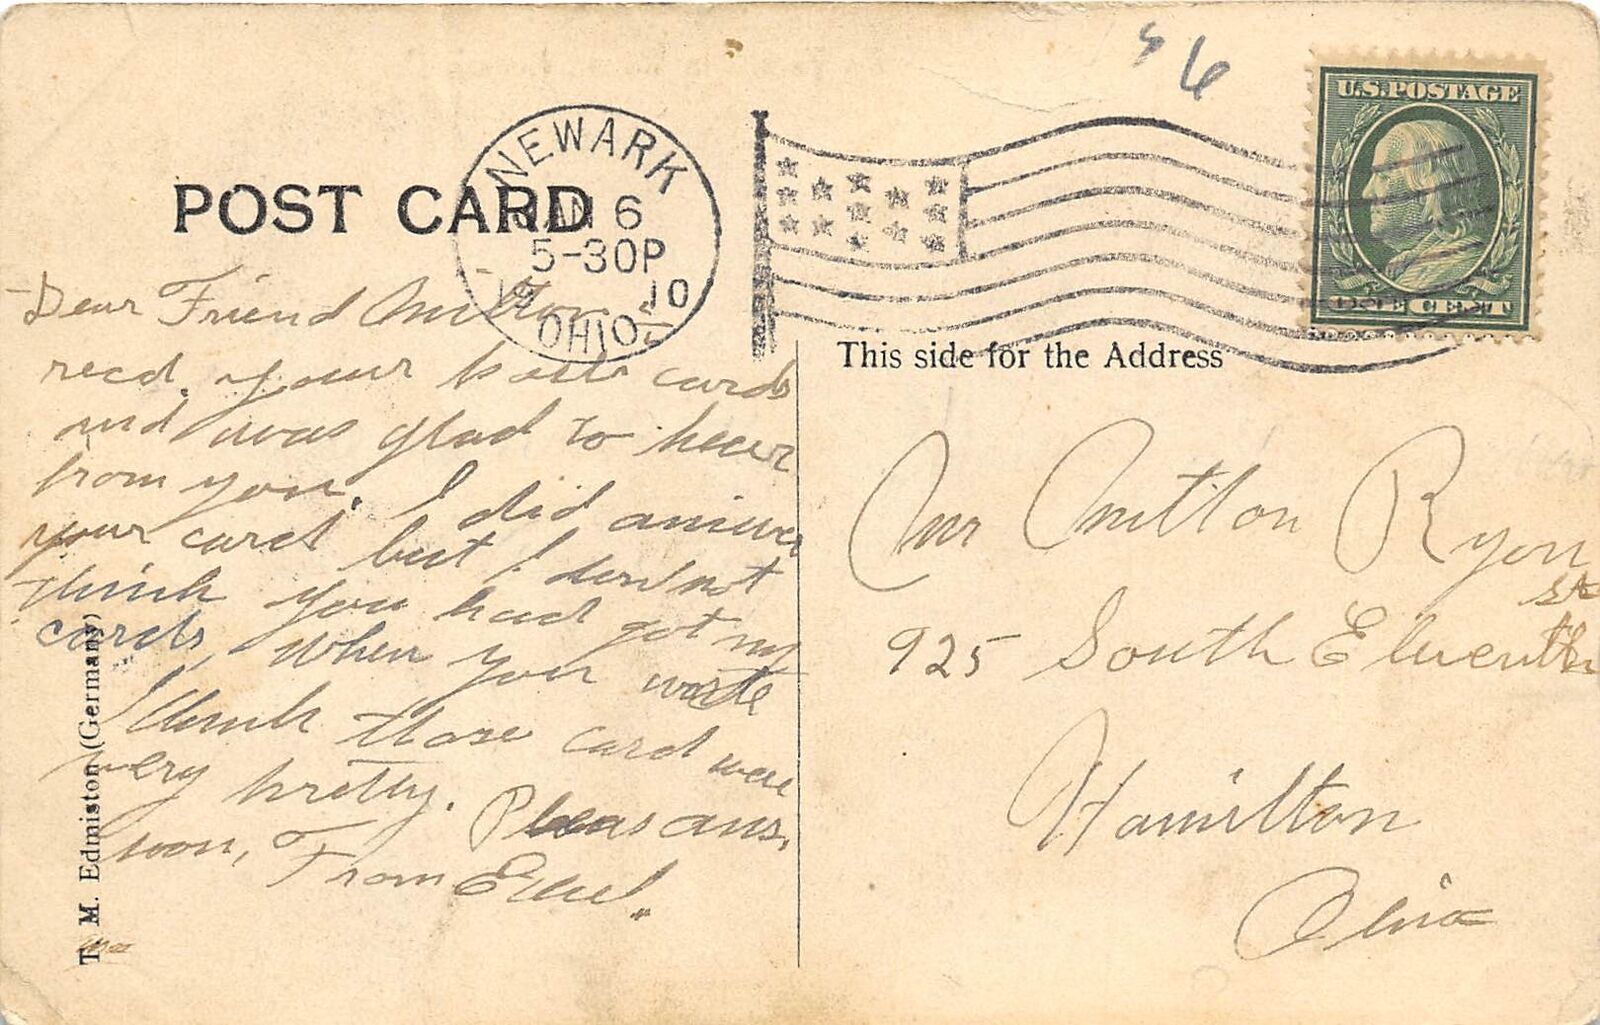 56
U.S. POSTAGE
ONE CENT
NEWARK
JAN 6
5-30P
19 10
OHIO
POST CARD
This side for the Address
Dear Friend Milton.
recd. your cards
and was glad to hear
from you. I did answer
your card but I do not
think you had got my
cards, when you wrote
I think those card were
very pretty. Pleas ans.
soon, From Ethel.
T. M. Edmiston (Germany)
Mr Milton Ryon
925 South Eleventh St
Hamilton
Ohio